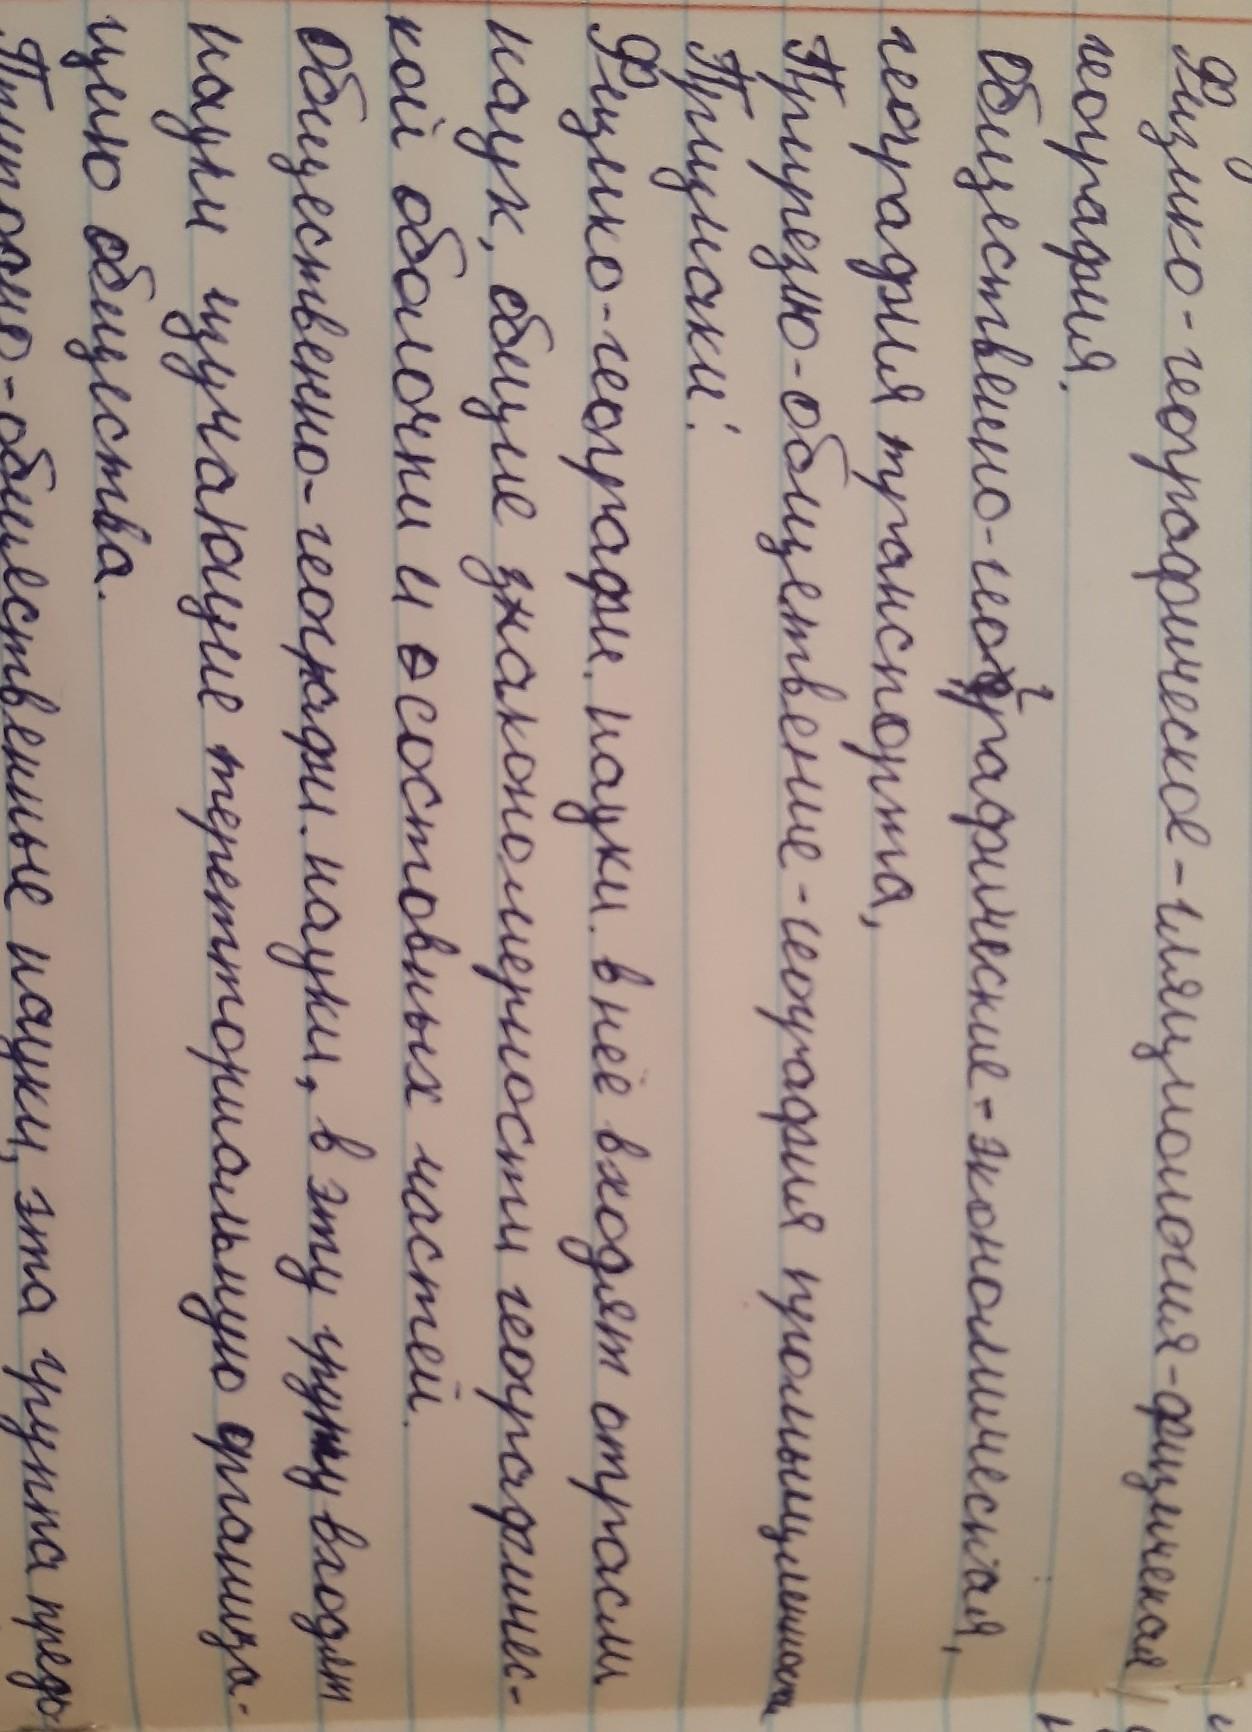 Физико-географическое-гляциология-физическая
география,
Общественно-географические-экономическая,
география транспорта,
Природно-общественные-география промышленности
Признаки:
Физико-географи. науки. в неё входят отрасли
наук, общие закономерности географичес-
кой оболочки и состовных частей.
Общественно-географи. науки, в эту группу входят
науки изучающие территориальную организа-
цию общества.
Природно-общественные науки, эта группа предо